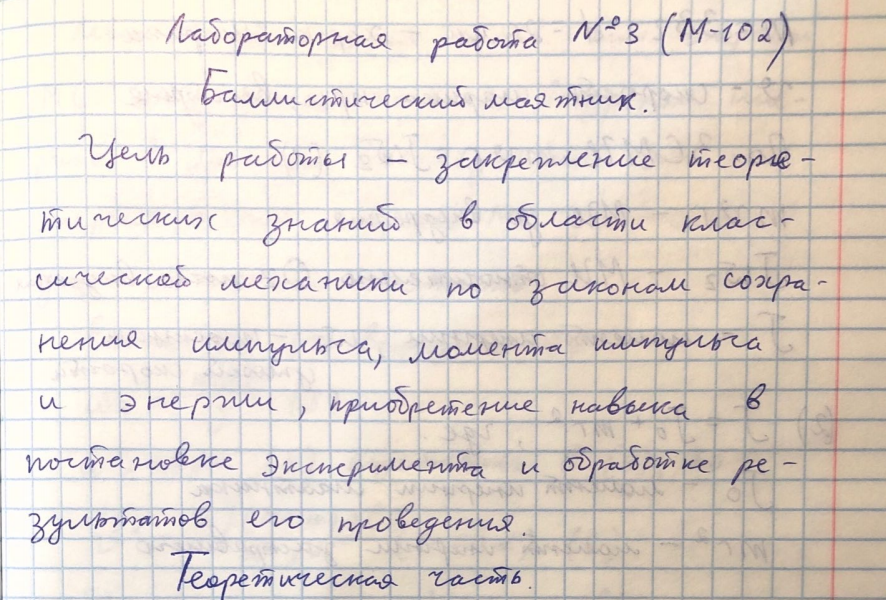 Лабораторная работа №3 (М-102)
Баллистический маятник.
Цель работы – закрепление теоре-
тических знаний в области клас-
сической механики по законам сохра-
нения импульса, момента импульса
и энергии, приобретение навыка в
постановке эксперимента и обработке ре-
зультатов его проведения.
Теоретическая часть.